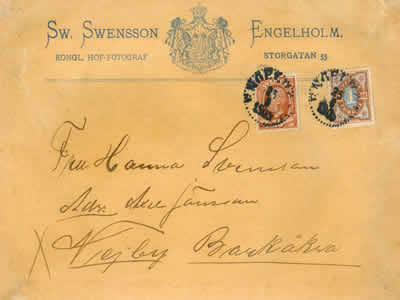 Sw. Swensson Engelholm.
Kongl. Hof-Fotograf Storgatan 55
Fru Hanna Svensson
Adr. Axel Jönsson
Vejby Barkåkra